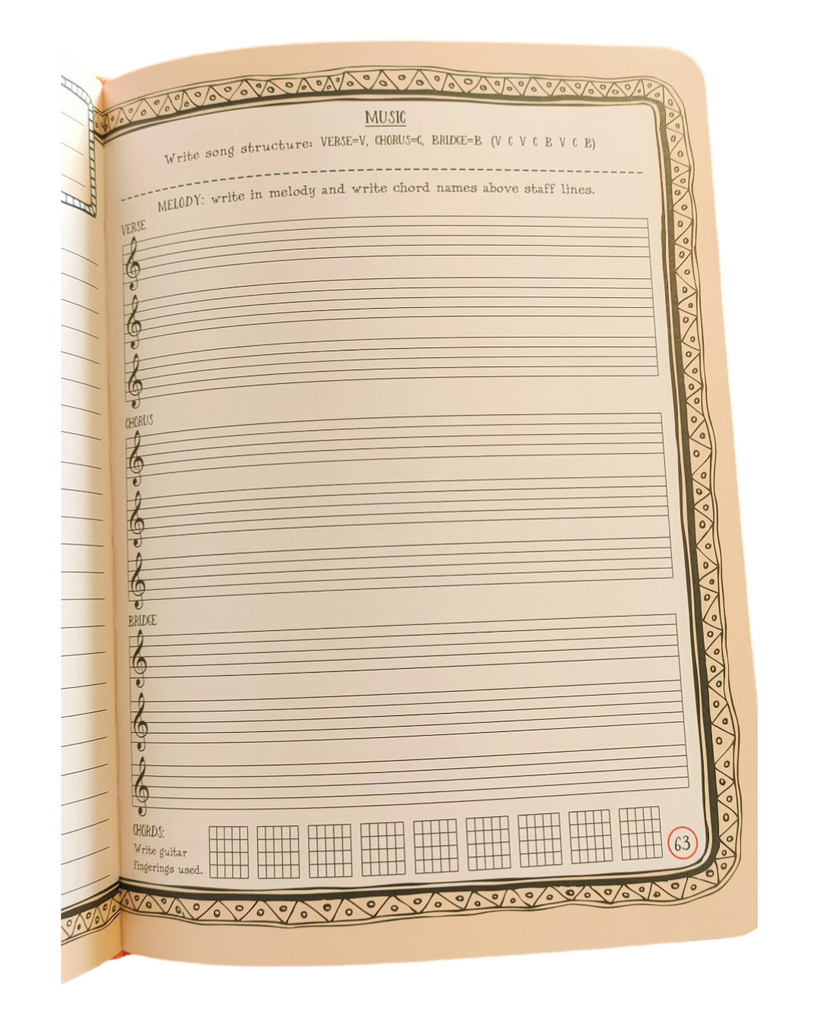 MUSIC
Write song structure: VERSE=V, CHORUS=C, BRIDGE=B (V C V C B V C B)
MELODY: write in melody and write chord names above staff lines.
VERSE
CHORUS
BRIDGE
CHORDS:
Write guitar
fingerings used.
63